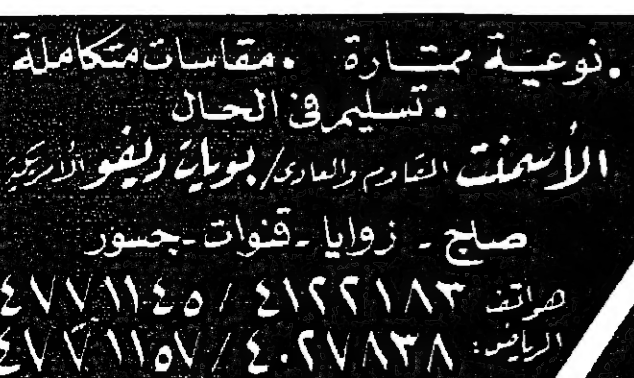 • نوعية ممتازة • مقاسات متكاملة
• تسليم فى الحال
الأسمنت المقاوم والعادى/ بويات ديفو الأمريكية
صاج - زوايا - قنوات - جسور
هواتف ٤١٢٢١٨٣ / ٤٧٧١١٤٥
الرياض: ٤٠٢٧٨٣٨ / ٤٧٧١١٥٧